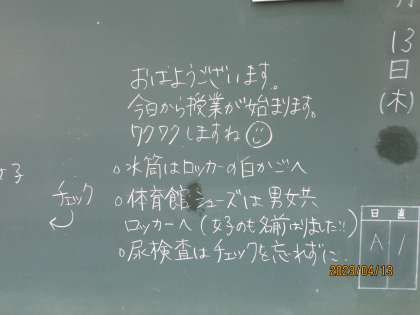 おはようございます。
今日から授業が始まります。
ワクワクしますね
○水筒はロッカーの白かごへ
○体育館シューズは男女共
ロッカーへ(女子のも名前はりました!!)
○尿検査はチェックを忘れずに.
チェック
子
月
13
日
(木)
日直
2023/04/13